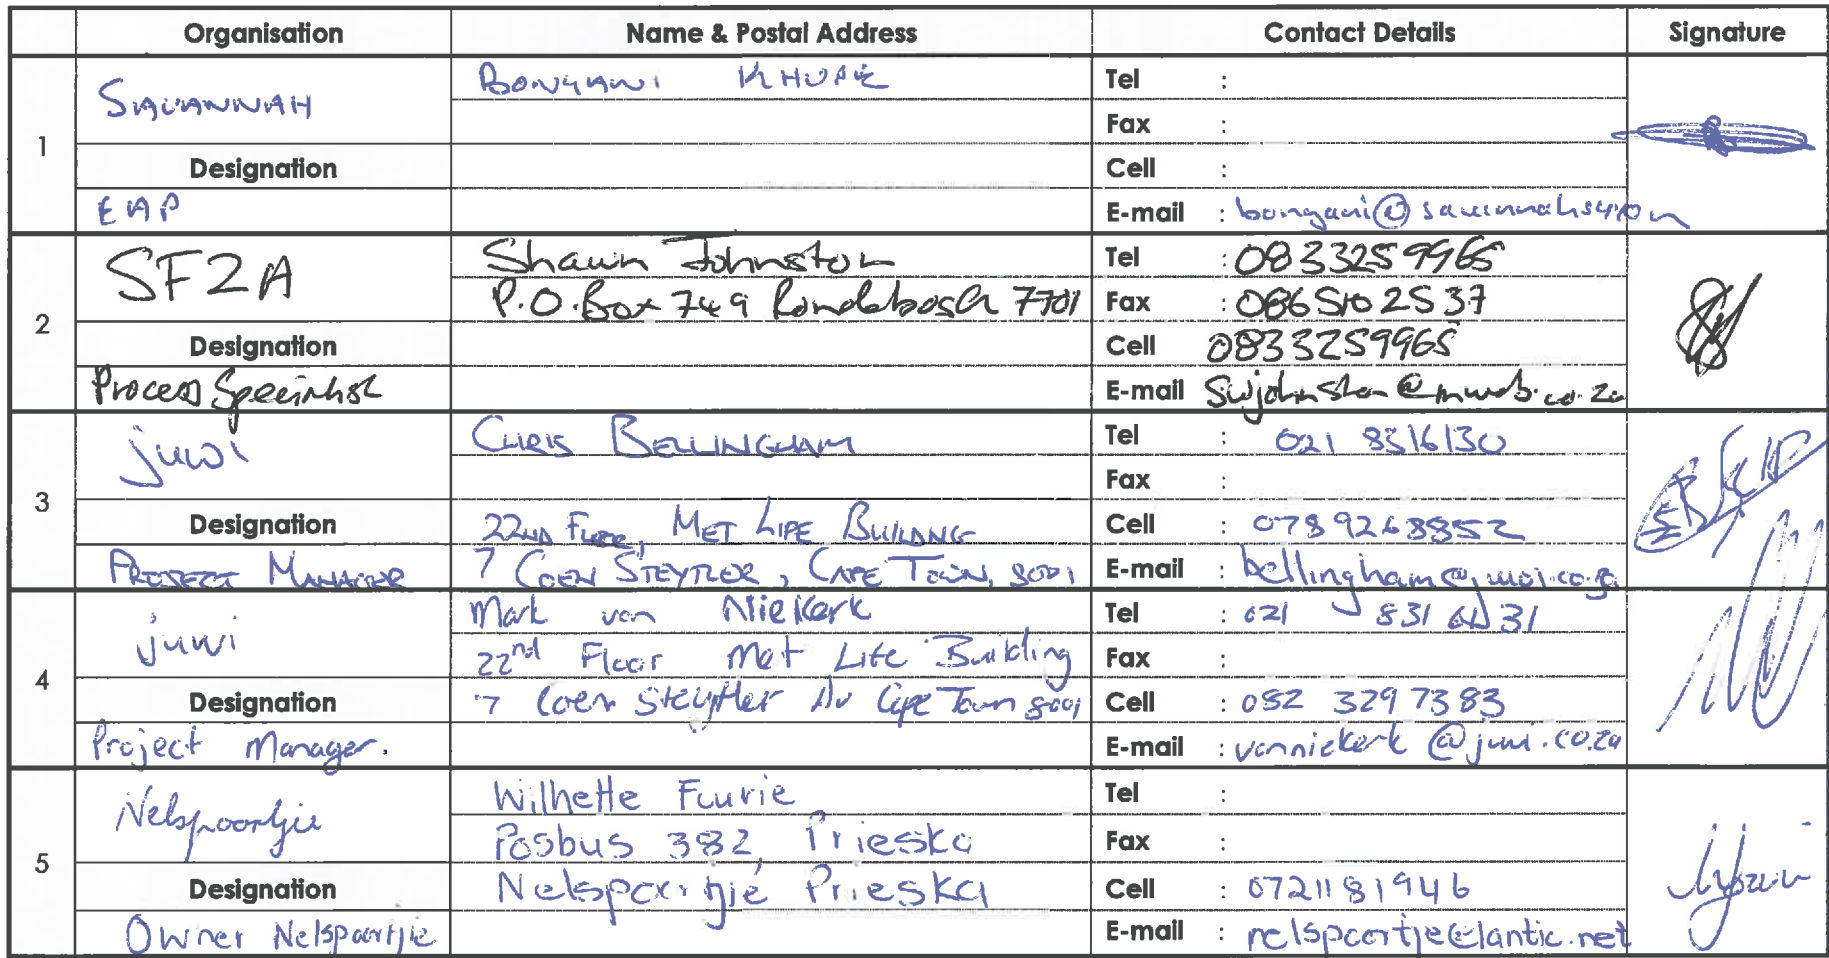 Organisation Name & Postal Address Contact Details Signature
1
SAVANNAH
BONGANI KHUPE
Tel :
Fax :
Designation
Cell :
EAP
E-mail : bongani@savannahsa.com
2
SF2A
Shawn Johnston
Tel : 0833259965
P.O.Box 749 Rondebosch 7701
Fax : 0865102537
Designation
Cell 0833259965
Process Specialist
E-mail Swjohnston@mweb.co.za
3
juwi
CHRIS BELLINGHAM
Tel : 021 8316130
Fax :
Designation
22ND FLOOR, MET LIFE BUILDING
Cell : 0789268852
PROJECT MANAGER
7 COEN STEYTLER, CAPE TOWN, 8001
E-mail : bellingham@juwi.co.za
4
juwi
Mark van Niekerk
Tel : 021 831 6131
22nd Floor Met Life Building
Fax :
Designation
7 Coen Steytler Av Cape Town 8001
Cell : 082 3297383
Project Manager.
E-mail : vanniekerk@juwi.co.za
5
Nelspoortjie
Fourie
Tel :
Posbus 382, Prieska
Fax :
Designation
Nelspoortjie Prieska
Cell : 0721181946
Owner Nelspoortjie
E-mail : nelspoortje@lantic.net